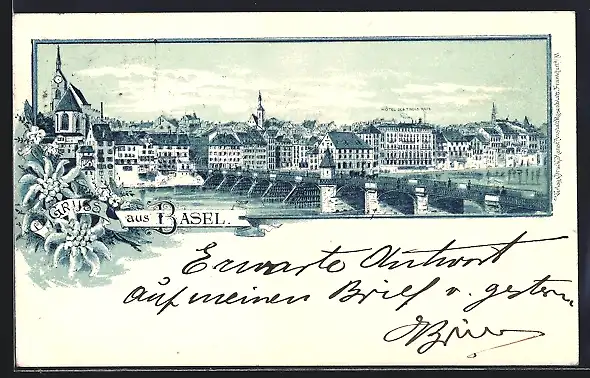 HÔTEL DES TROIS ROIS
GRUSS
aus BASEL.
Erwarte Antwort
auf meinen Brief v. gestern